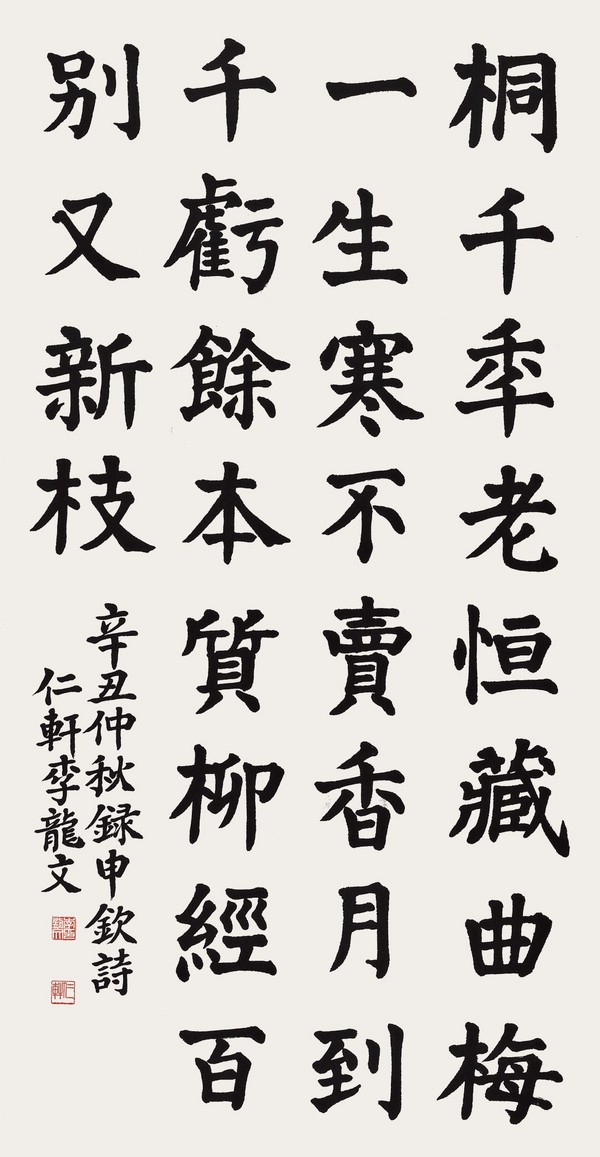 桐千秊老恒藏曲梅
一生寒不賣香月到
千虧餘本質柳經百
别又新枝
辛丑仲秋録申欽詩
仁軒李龍文
仁軒